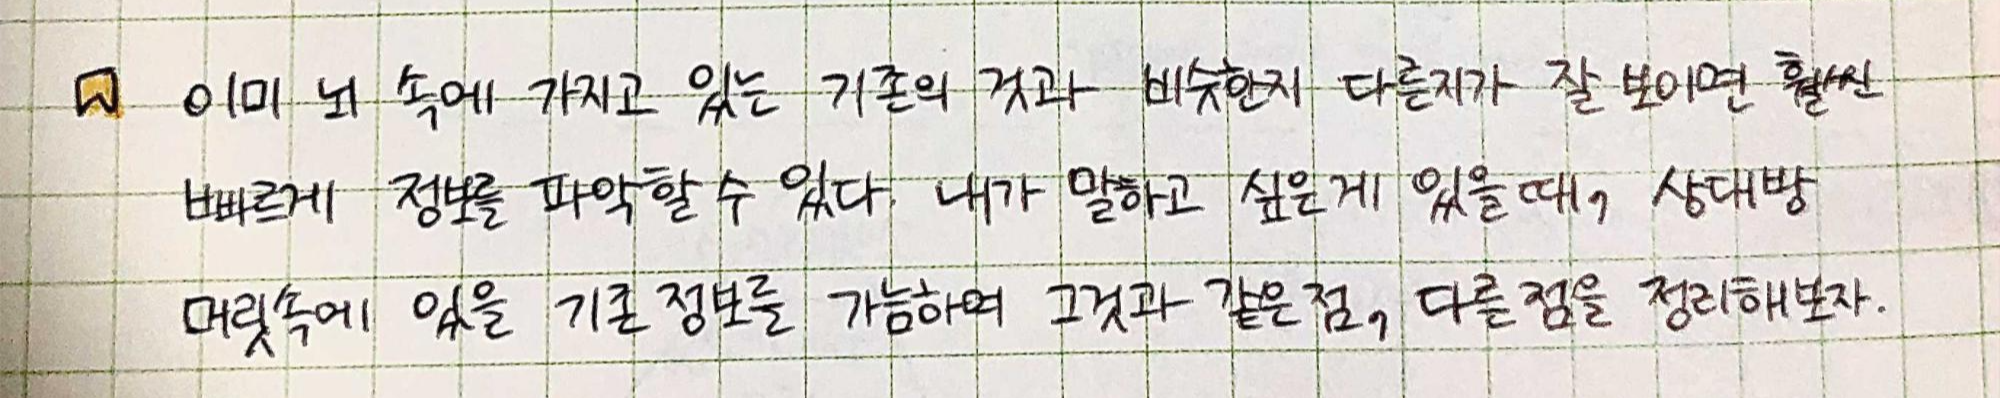 이미 뇌 속에 가지고 있는 기존의 것과 비슷한지 다른지가 잘 보이면 훨씬
빠르게 정보를 파악할 수 있다. 내가 말하고 싶은게 있을 때, 상대방
머릿속에 있을 기존 정보를 가늠하며 그것과 같은 점, 다른 점을 정리해보자.